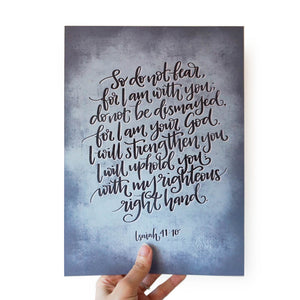 So do not fear,
for I am with you;
do not be dismayed,
for I am your God.
I will strengthen you
I will uphold you
with my righteous
right hand.
Isaiah 41:10